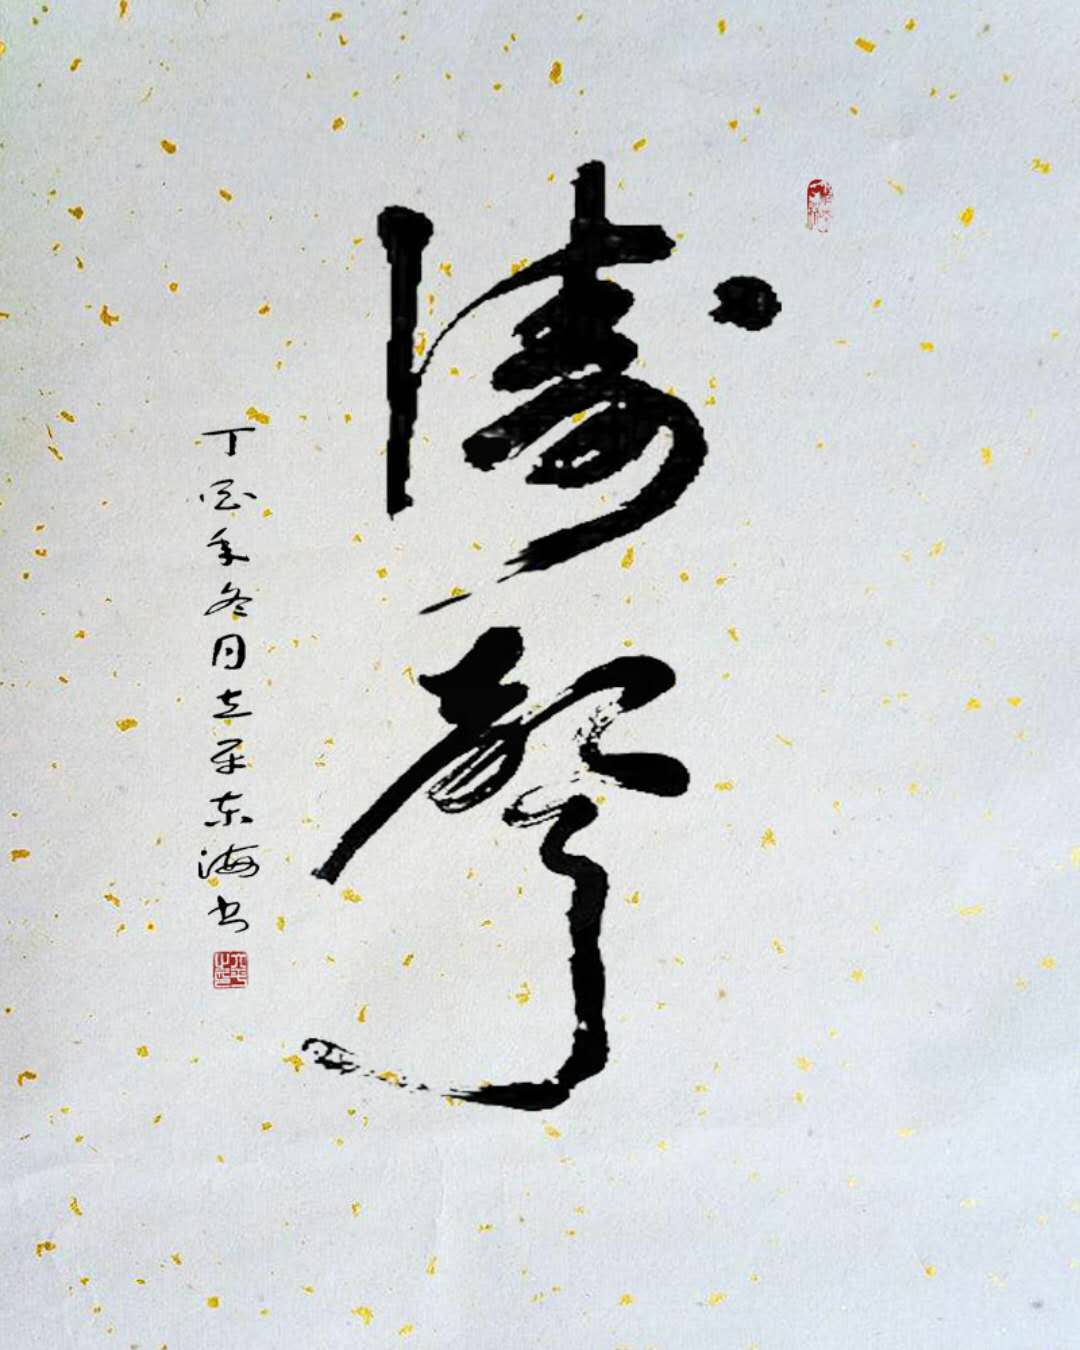 濤聲
丁酉年冬月立平东海书